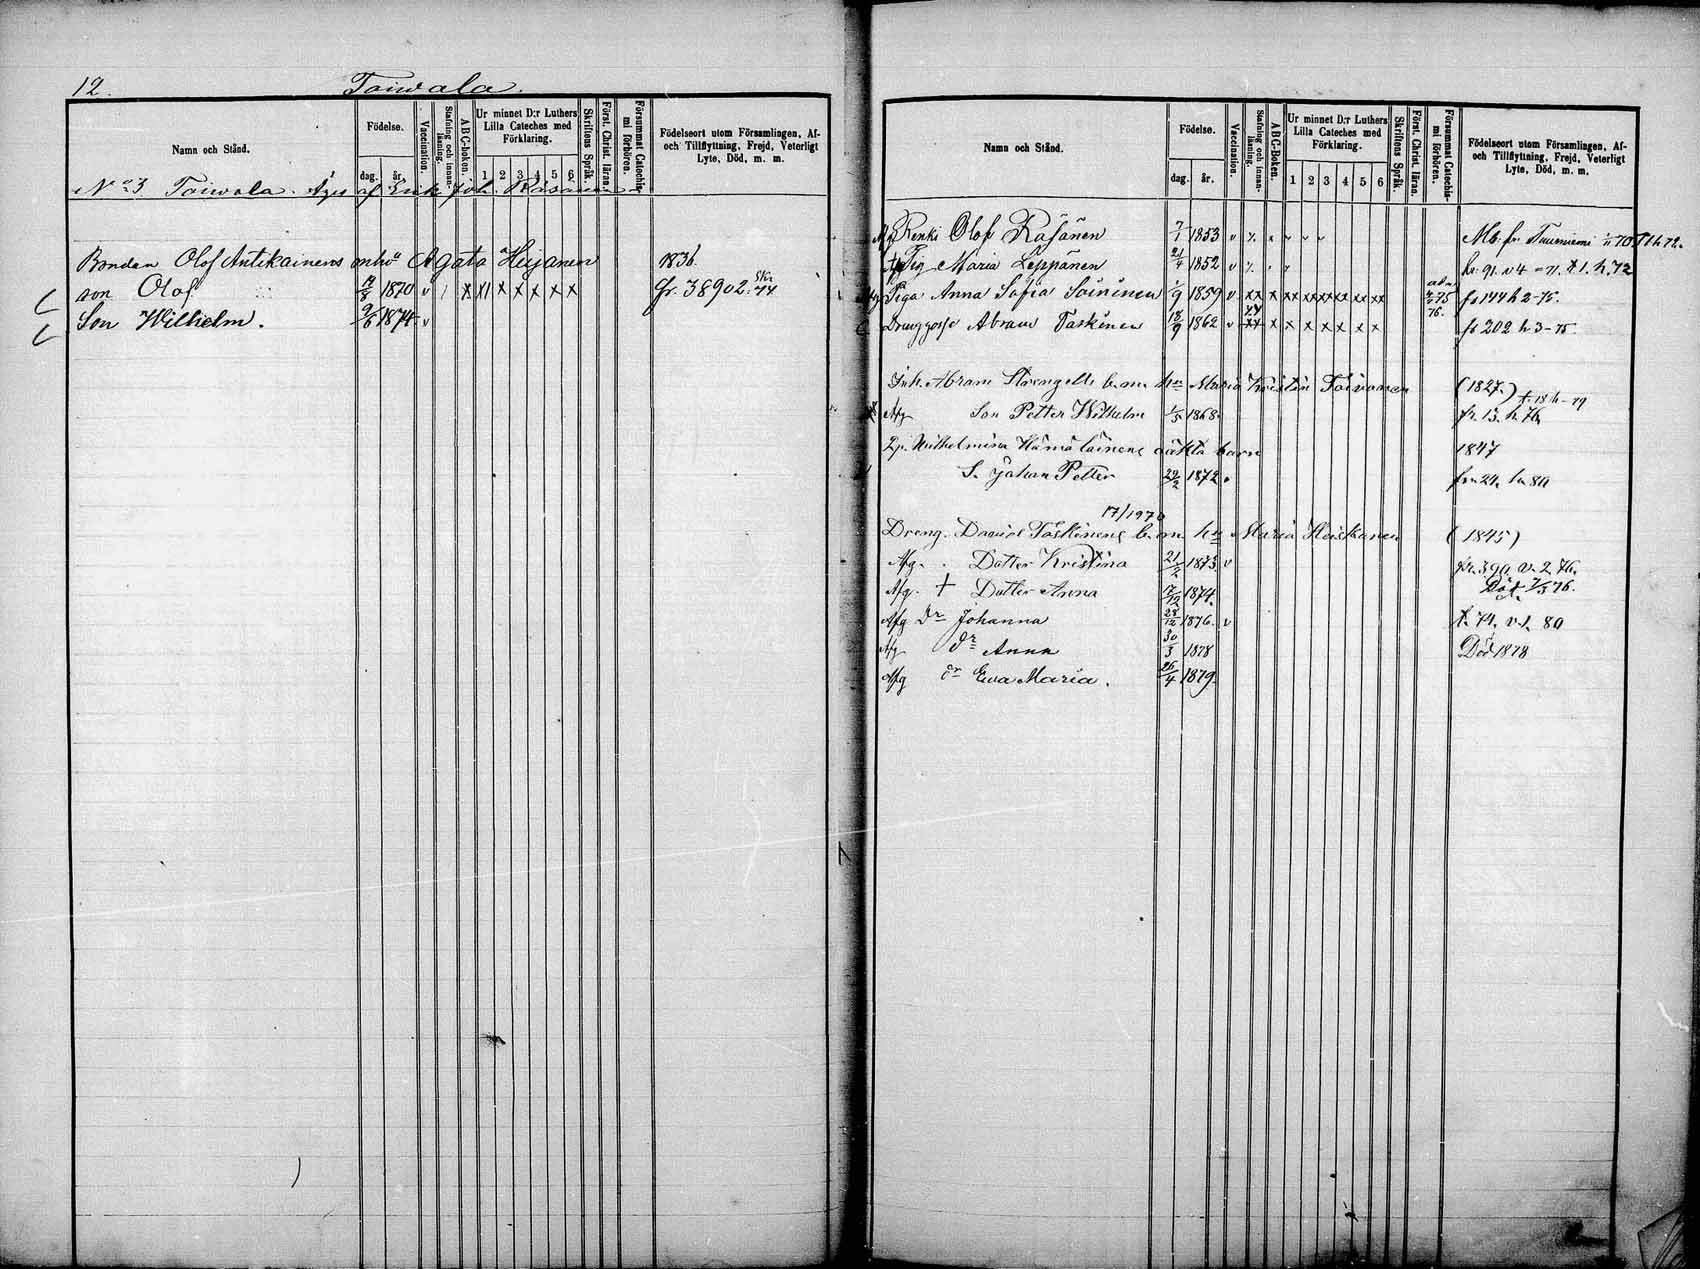 12. Toiwala.
Namn och Stånd.
Födelse.
dag. år.
Vaccination.
Stafning och innanläsning.
A B C-boken.
Ur minnet D:r Luthers Lilla Cateches med Förklaring.
1 2 3 4 5 6
Skriftens Språk.
Först. Christ. läran.
Försummat Catechismi förhören.
Födelseort utom Församlingen, Af- och Tillflyttning, Frejd, Veterligt Lyte, Död, m. m.
No 3 Toiwala. Äges af Erik Joh. Räsänen
Bondan Olof Antikainens Agata Heijanen 1836
son Olof 1870 v x x x x x x
Son Wilhelm. 1874 v
Namn och Stånd.
Födelse.
dag. år.
Vaccination.
Stafning och innanläsning.
A B C-Boken.
Ur minnet D:r Luthers Lilla Cateches med Förklaring.
1 2 3 4 5 6
Skriftens Språk.
Först. Christ. läran.
Försummat Catechismi förhören.
Födelseort utom Församlingen, Af- och Tillflyttning, Frejd, Veterligt Lyte, Död, m. m.
Renki Olof Räsänen 7/1 1853 v
Pig Maria Leppänen 21/4 1852 v
Piga Anna Sofia Soininen 1/9 1859 v fr 144 h 2-75.
Drenggosse Abram Taskinen 18/9 1862 v fr 202 h 3-75.
Inh. Abram Strengells b. m. hu Maria Kristin Toivanen (1827.)
Afg Son Petter Wilhelm 1/5 1868. fr. 13. h. 76.
Wilhelmina Hämäläinens oäkta barn 1847
S. Johan Petter 29/2 1872.
17/1970
Dreng. David Taskinens b. m. hu Maria Heiskanen (1845)
Afg. Dotter Kristina 21/2 1873 v
Afg. + Dotter Anna 17/12 1874. Död 7/3 76.
Afg Dr Johanna 28/12 1876. v
Afg dr Anna 30/3 1878 Död 1878
Afg dr Ewa Maria. 26/4 1879.